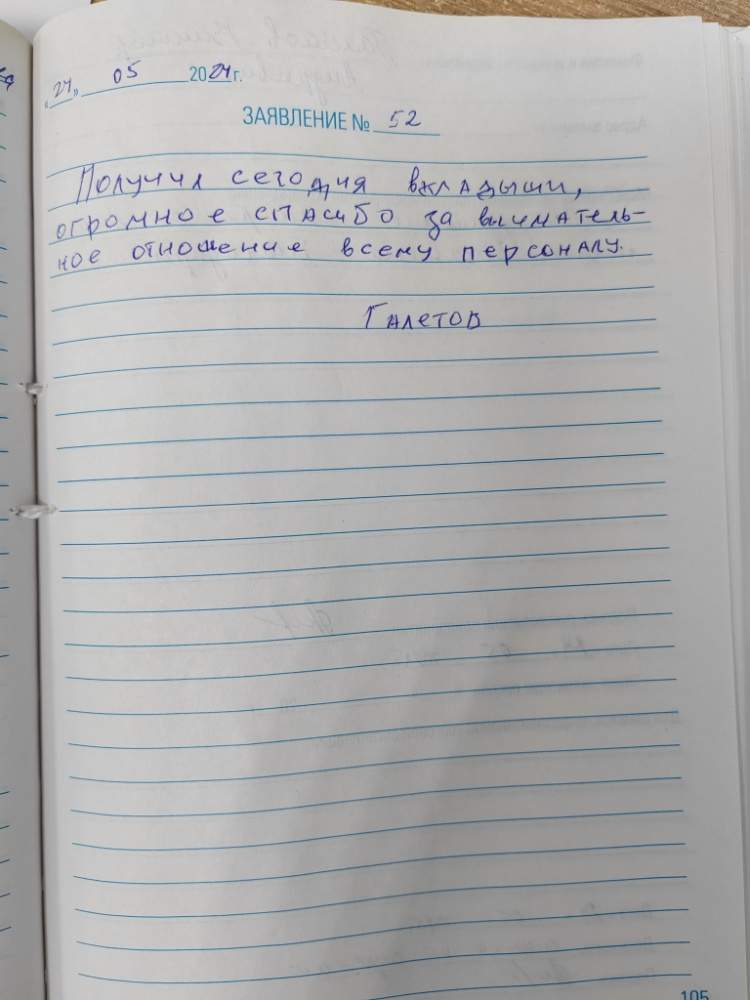 «24» 05 2024г.
ЗАЯВЛЕНИЕ № 52
Получил сегодня вкладыши,
огромное спасибо за вниматель-
ное отношение всему персоналу.
Галетов
105